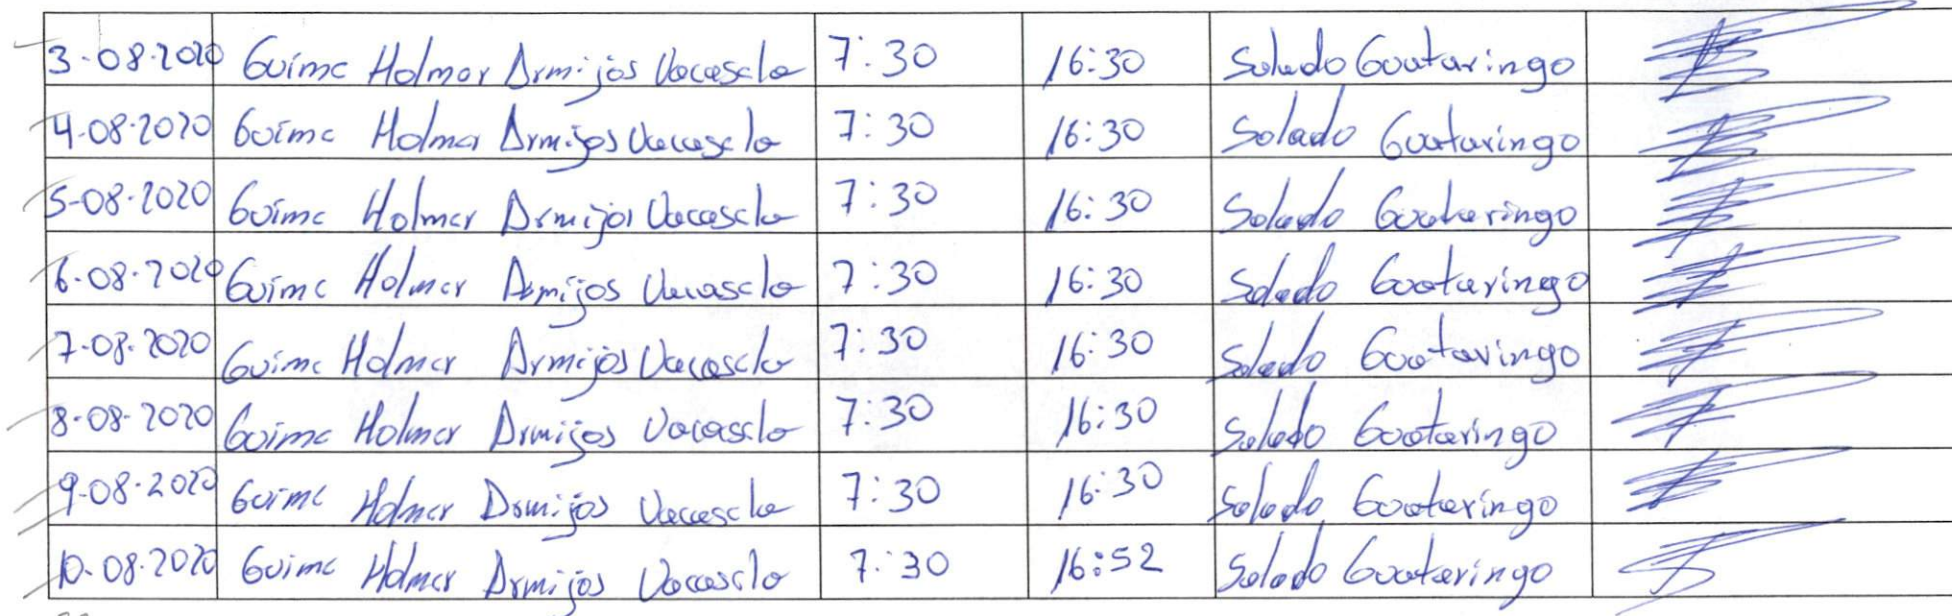 3-08-2020 Guimc Holmer Armijos Vacascla 7:30 16:30 Salado Guataringo
4-08-2020 Guimc Holmer Armijos Vacascla 7:30 16:30 Salado Guataringo
5-08-2020 Guimc Holmer Armijos Vacascla 7:30 16:30 Salado Guataringo
6-08-2020 Guimc Holmer Armijos Vacascla 7:30 16:30 Salado Guataringo
7-08-2020 Guimc Holmer Armijos Vacascla 7:30 16:30 Salado Guataringo
8-08-2020 Guimc Holmer Armijos Vacascla 7:30 16:30 Salado Guataringo
9-08-2020 Guimc Holmer Armijos Vacascla 7:30 16:30 Salado Guataringo
10-08-2020 Guimc Holmer Armijos Vacascla 7:30 16:52 Salado Guataringo